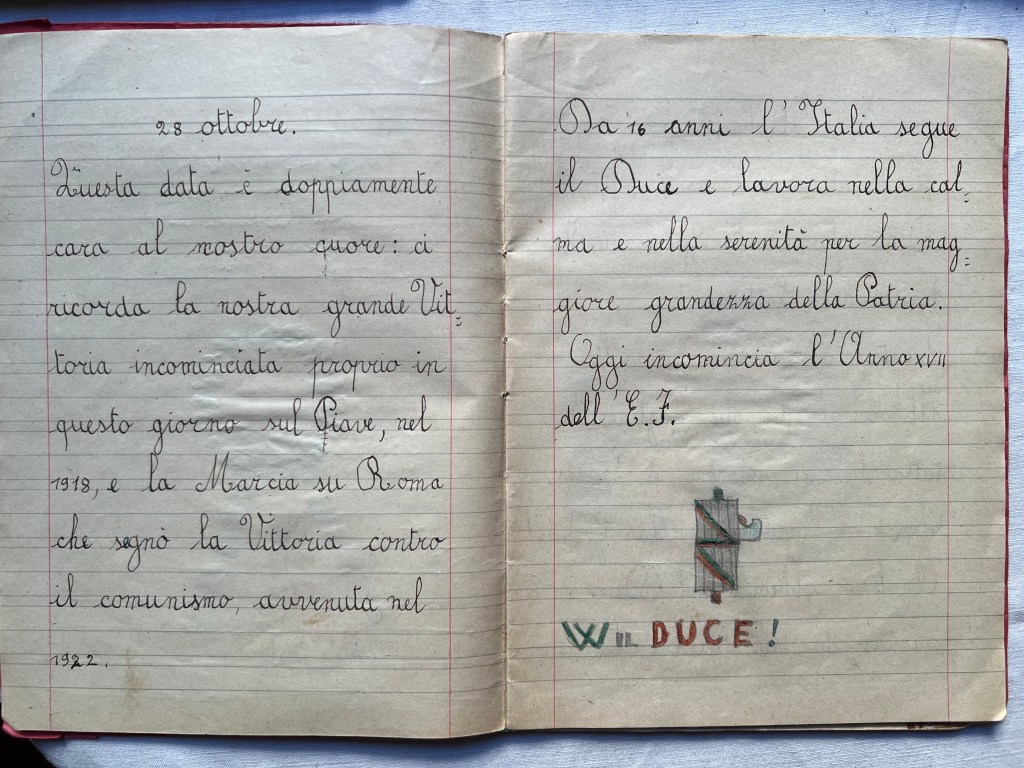 28 ottobre.
Questa data è doppiamente
cara al nostro quore: ci
ricorda la nostra grande Vit=
toria incominciata proprio in
questo giorno sul Piave, nel
1918, e la Marcia su Roma
che segnò la Vittoria contro
il comunismo, avvenuta nel
1922.
Da 16 anni l'Italia segue
il Duce e lavora nella cal=
ma e nella serenità per la mag=
giore grandezza della Patria.
Oggi incomincia l'Anno XVII
dell'E.F.
W IL DUCE!